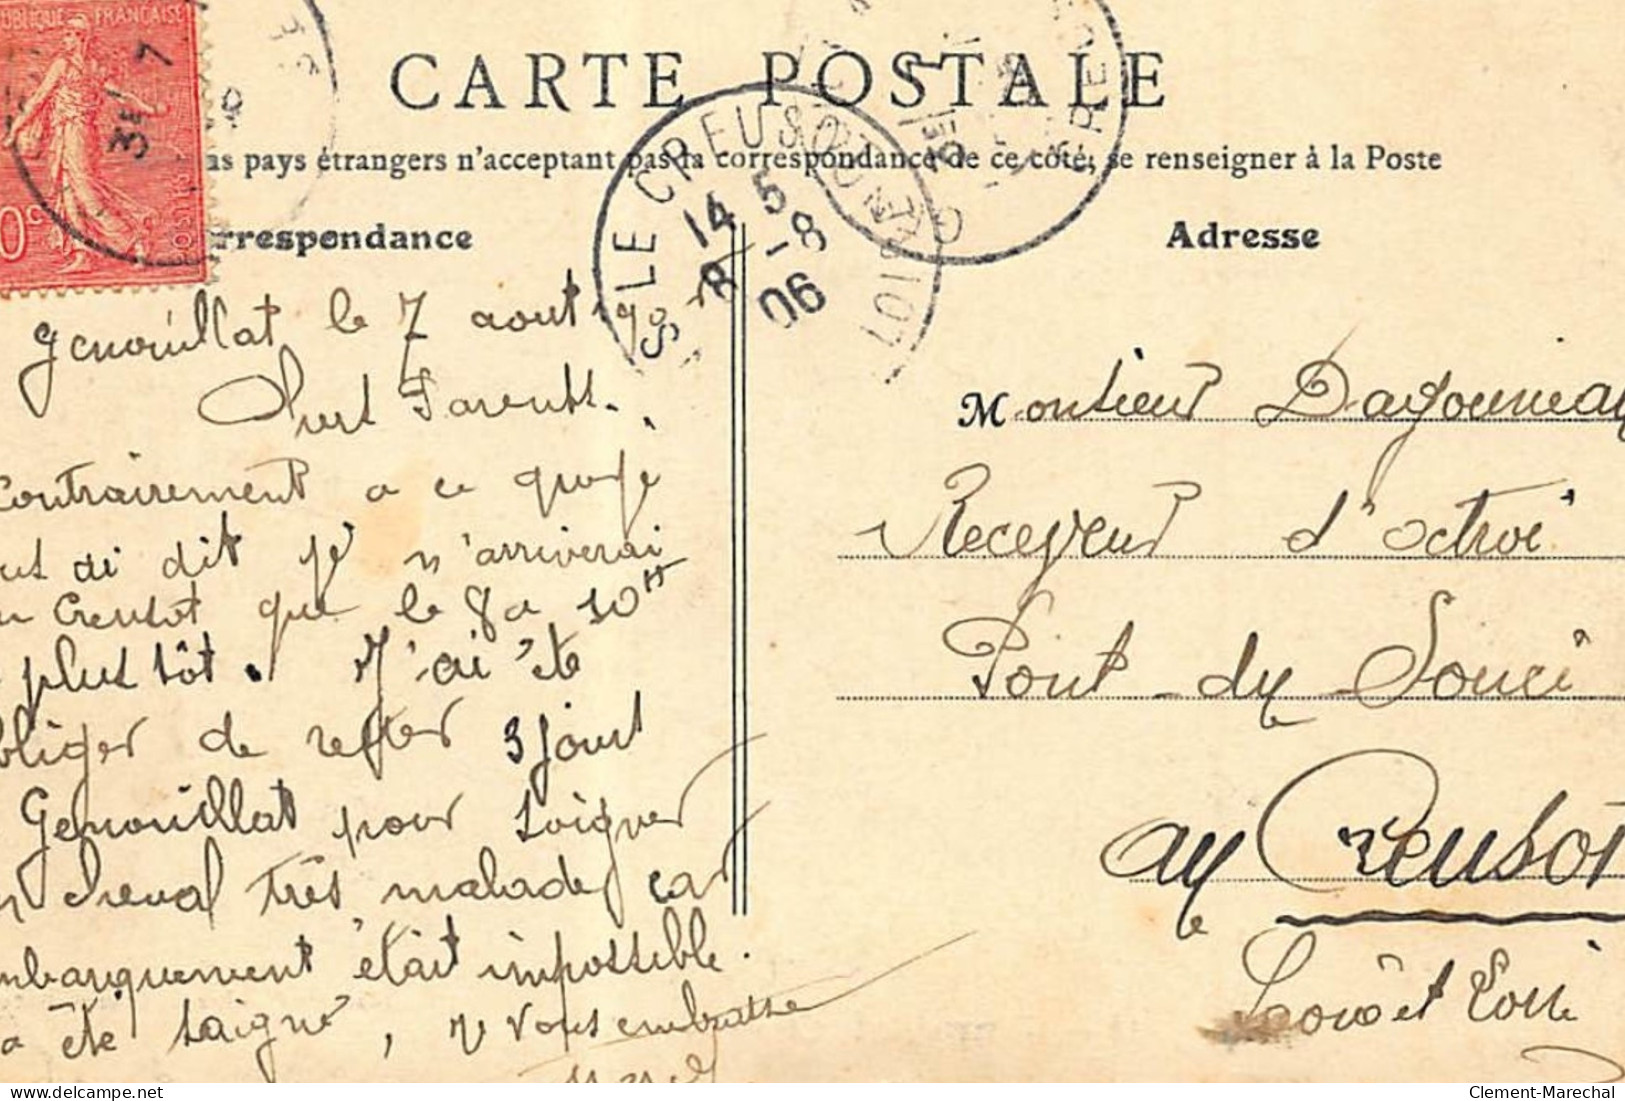 RÉPUBLIQUE FRANÇAISE
CARTE POSTALE
pays étrangers n'acceptant pas la correspondance de ce côté, se renseigner à la Poste
rrespondance
Adresse
0c
LE CREUSOT
14 5
8 - 8
06
Genouillat le 7 aout
Chers Parents.
Contrairement a ce que je
ous ai dit je n'arriverai
au Creusot que le 8 a 10 H
plus tôt. J'ai été
bliger de rester 3 jours
Genouillat pour soigner
cheval très malade, car
mbarquement était impossible.
a été saigné, je vous embrasse
Monsieur Dagouneau
Receveur d'octroi
Pont du Souci
au Creusot
Saône et Loire
Clement-Marechal